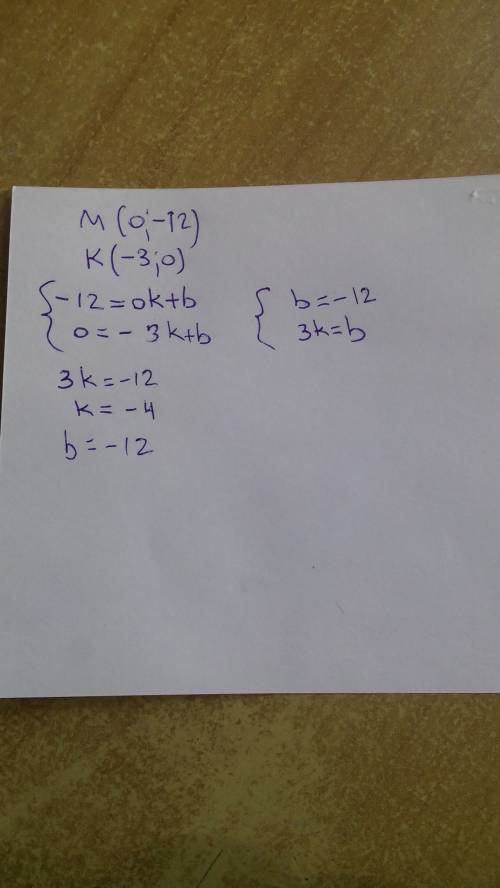 M (0;-12)
K (-3;0)
{ -12 = 0k+b
0 = - 3k+b
{ b = -12
3k = b
3k = -12
k = -4
b = -12